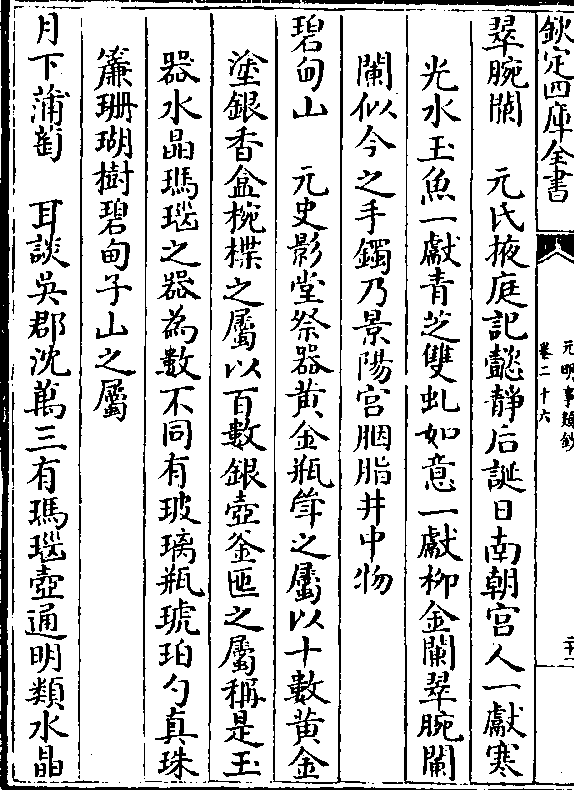 欽定四庫全書
元明事類鈔
卷二十六
翠腕闌　元氏掖庭記懿静后誕日南朝宫人一獻寒
光水玉魚一獻青芝雙虬如意一獻柳金闌翠腕闌
闌似今之手鐲乃景陽宫胭脂井中物
碧甸山　元史影堂祭器黄金瓶斝之屬以十數黄金
塗銀香盒椀楪之屬以百數銀壺釡匜之屬稱是玉
器水晶瑪瑙之器為數不同有玻璃瓶琥珀勺真珠
簾珊瑚樹碧甸子山之屬
月下蒲萄　耳談吳郡沈萬三有瑪瑙壺通明類水晶